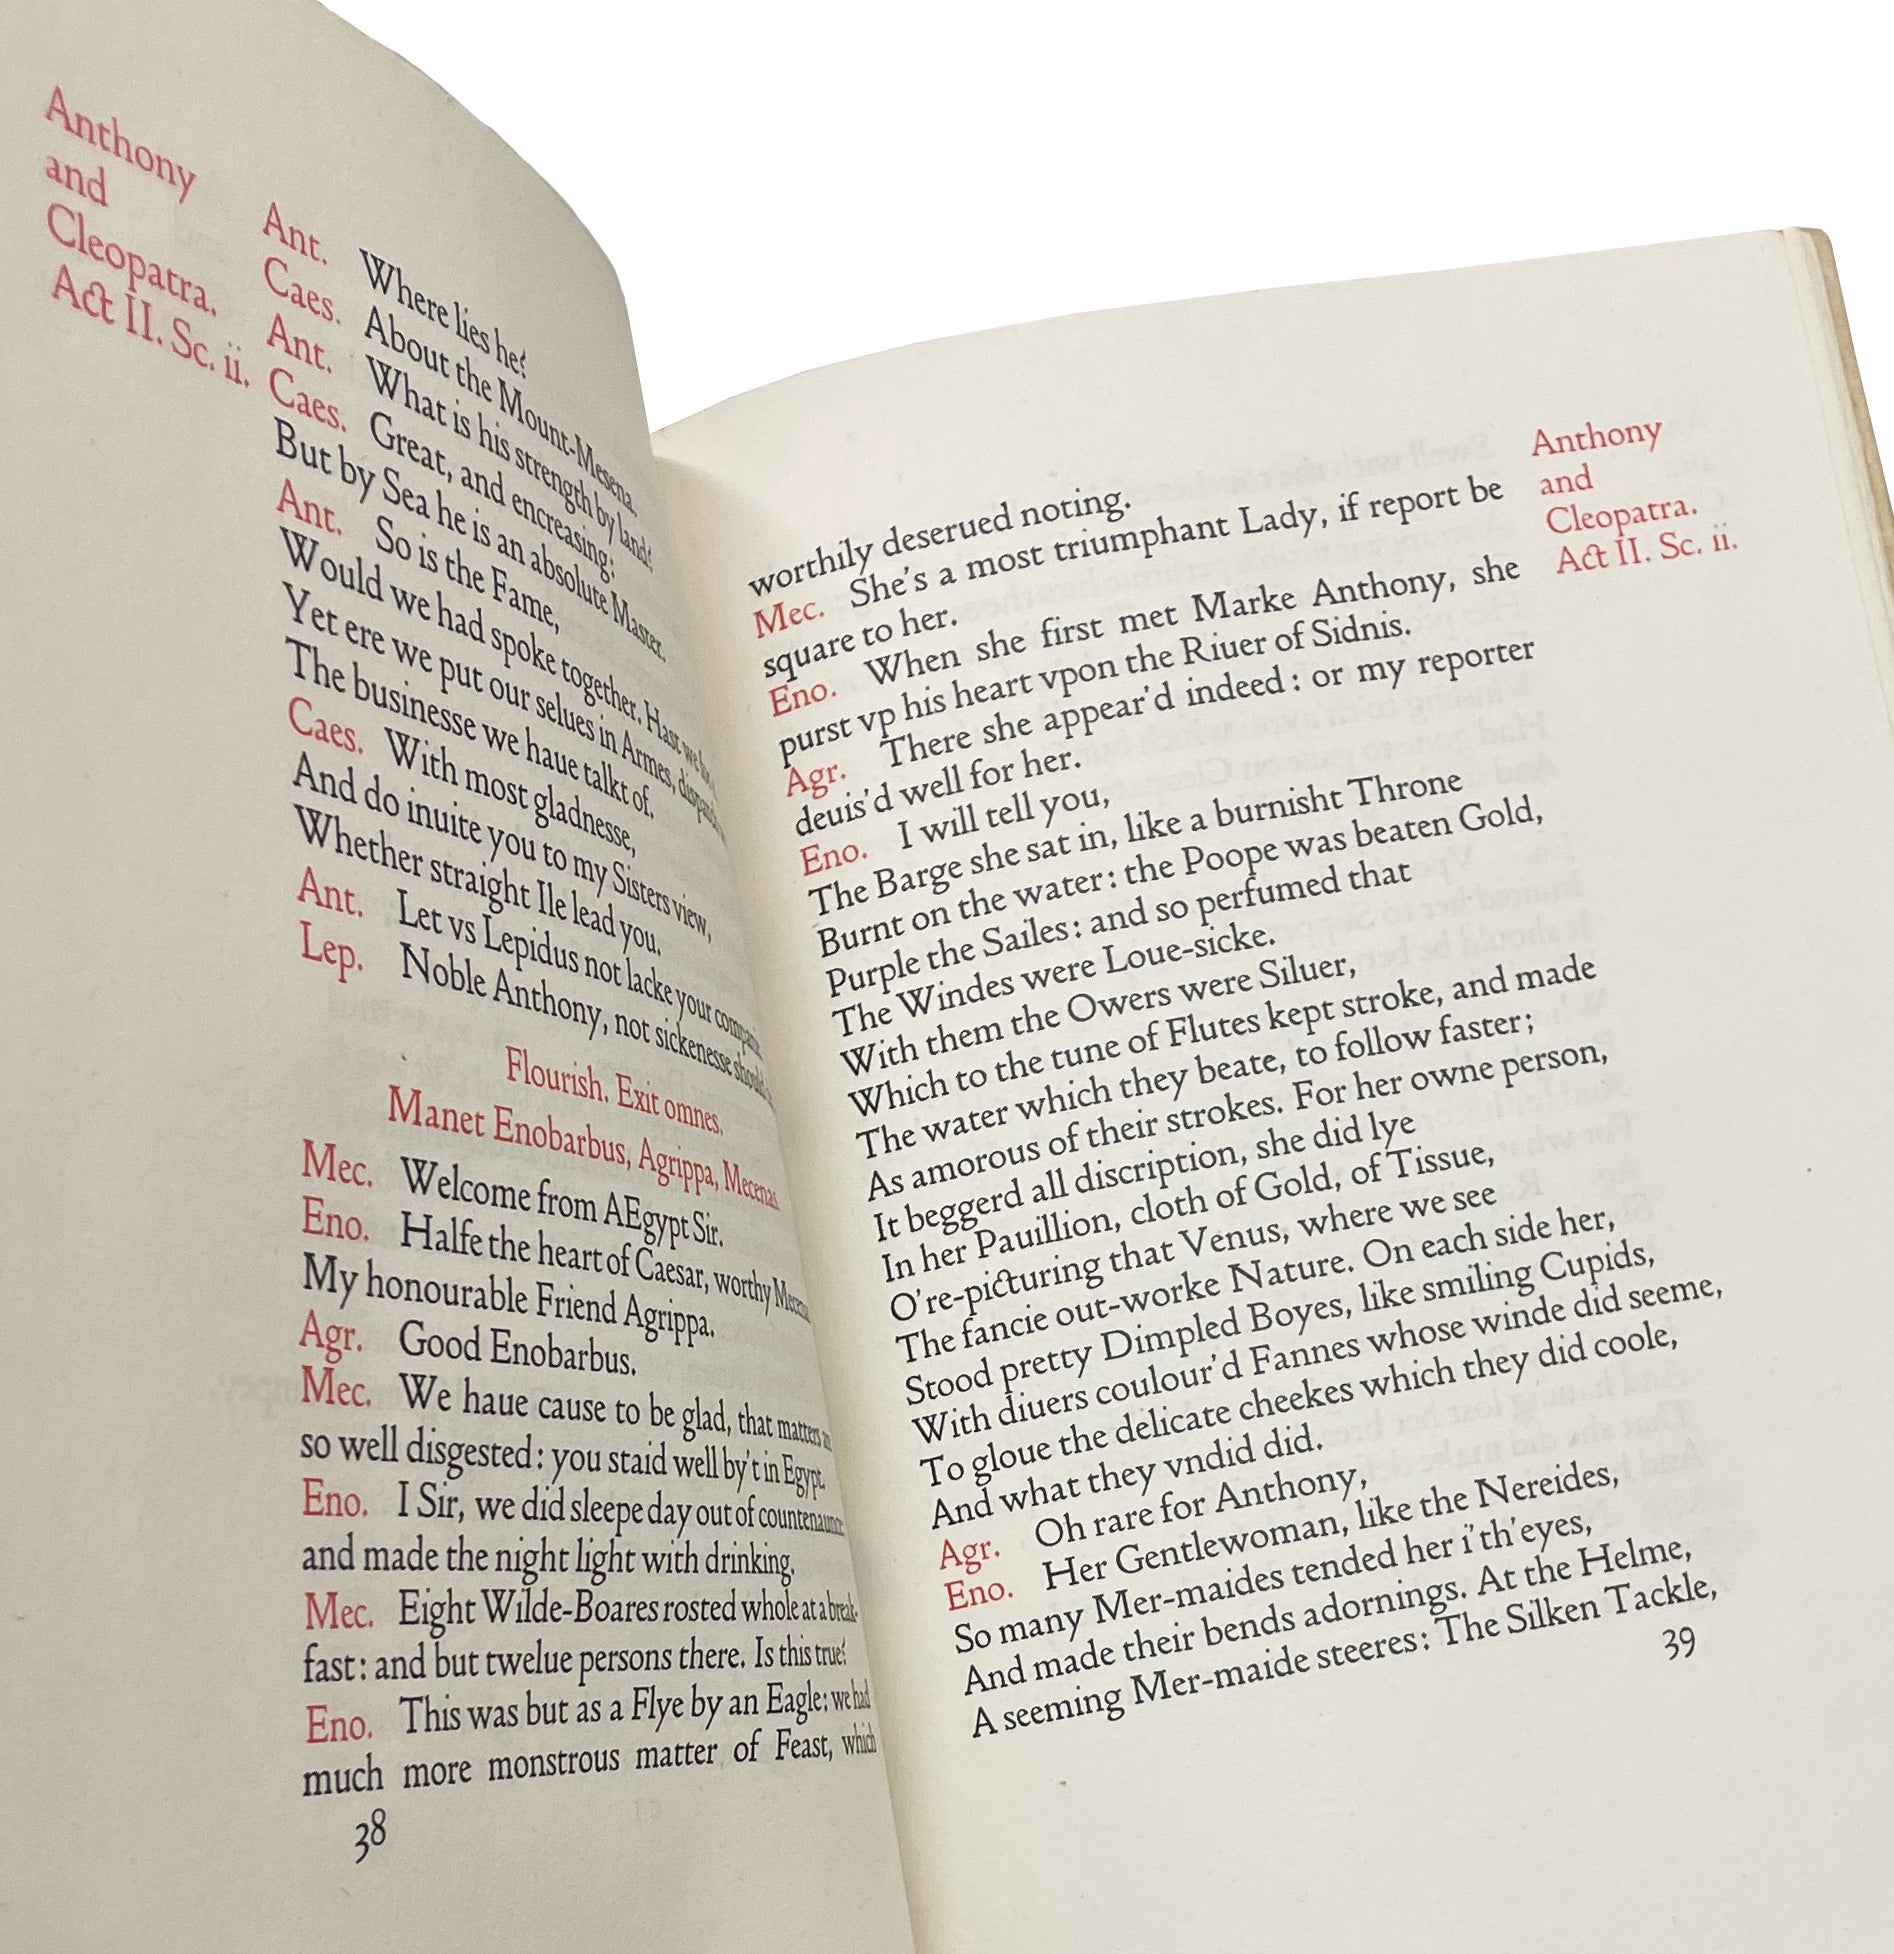 Anthony
and
Cleopatra.
Act II. Sc. ii.
Ant. Where lies he?
Caes. About the Mount-Mesena.
Ant. What is his strength by land?
Caes. Great, and encreasing:
But by Sea he is an absolute Master.
Ant. So is the Fame,
Would we had spoke together. Hast we
Yet ere we put our selues in Armes, dispatch
The businesse we haue talkt of.
Caes. With most gladnesse,
And do inuite you to my Sisters view,
Whether straight Ile lead you.
Ant. Let vs Lepidus not lacke your companie
Lep. Noble Anthony, not sickenesse should
Flourish. Exit omnes.
Manet Enobarbus, Agrippa, Mecenas
Mec. Welcome from AEgypt Sir.
Eno. Halfe the heart of Caesar, worthy
My honourable Friend Agrippa.
Agr. Good Enobarbus.
Mec. We haue cause to be glad, that matters
so well disgested: you staid well by't in Egypt.
Eno. I Sir, we did sleepe day out of countenaunce
and made the night light with drinking.
Mec. Eight Wilde-Boares rosted whole at a break-
fast: and but twelue persons there. Is this true?
Eno. This was but as a Flye by an Eagle: we had
much more monstrous matter of Feast, which
38
worthily deserued noting.
Mec. She's a most triumphant Lady, if report be
square to her.
Eno. When she first met Marke Anthony, she
purst vp his heart vpon the Riuer of Sidnis.
Agr. There she appear'd indeed: or my reporter
deuis'd well for her.
Eno. I will tell you,
The Barge she sat in, like a burnisht Throne
Burnt on the water: the Poope was beaten Gold,
Purple the Sailes: and so perfumed that
The Windes were Loue-sicke.
With them the Owers were Siluer,
Which to the tune of Flutes kept stroke, and made
The water which they beate, to follow faster;
As amorous of their strokes. For her owne person,
It beggerd all discription, she did lye
In her Pauillion, cloth of Gold, of Tissue,
O're-picturing that Venus, where we see
The fancie out-worke Nature. On each side her,
Stood pretty Dimpled Boyes, like smiling Cupids,
With diuers coulour'd Fannes whose winde did seeme,
To gloue the delicate cheekes which they did coole,
And what they vndid did.
Agr. Oh rare for Anthony,
Eno. Her Gentlewoman, like the Nereides,
So many Mer-maides tended her i'th'eyes,
And made their bends adornings. At the Helme,
A seeming Mer-maide steeres: The Silken Tackle,
39
Anthony
and
Cleopatra.
Act II. Sc. ii.